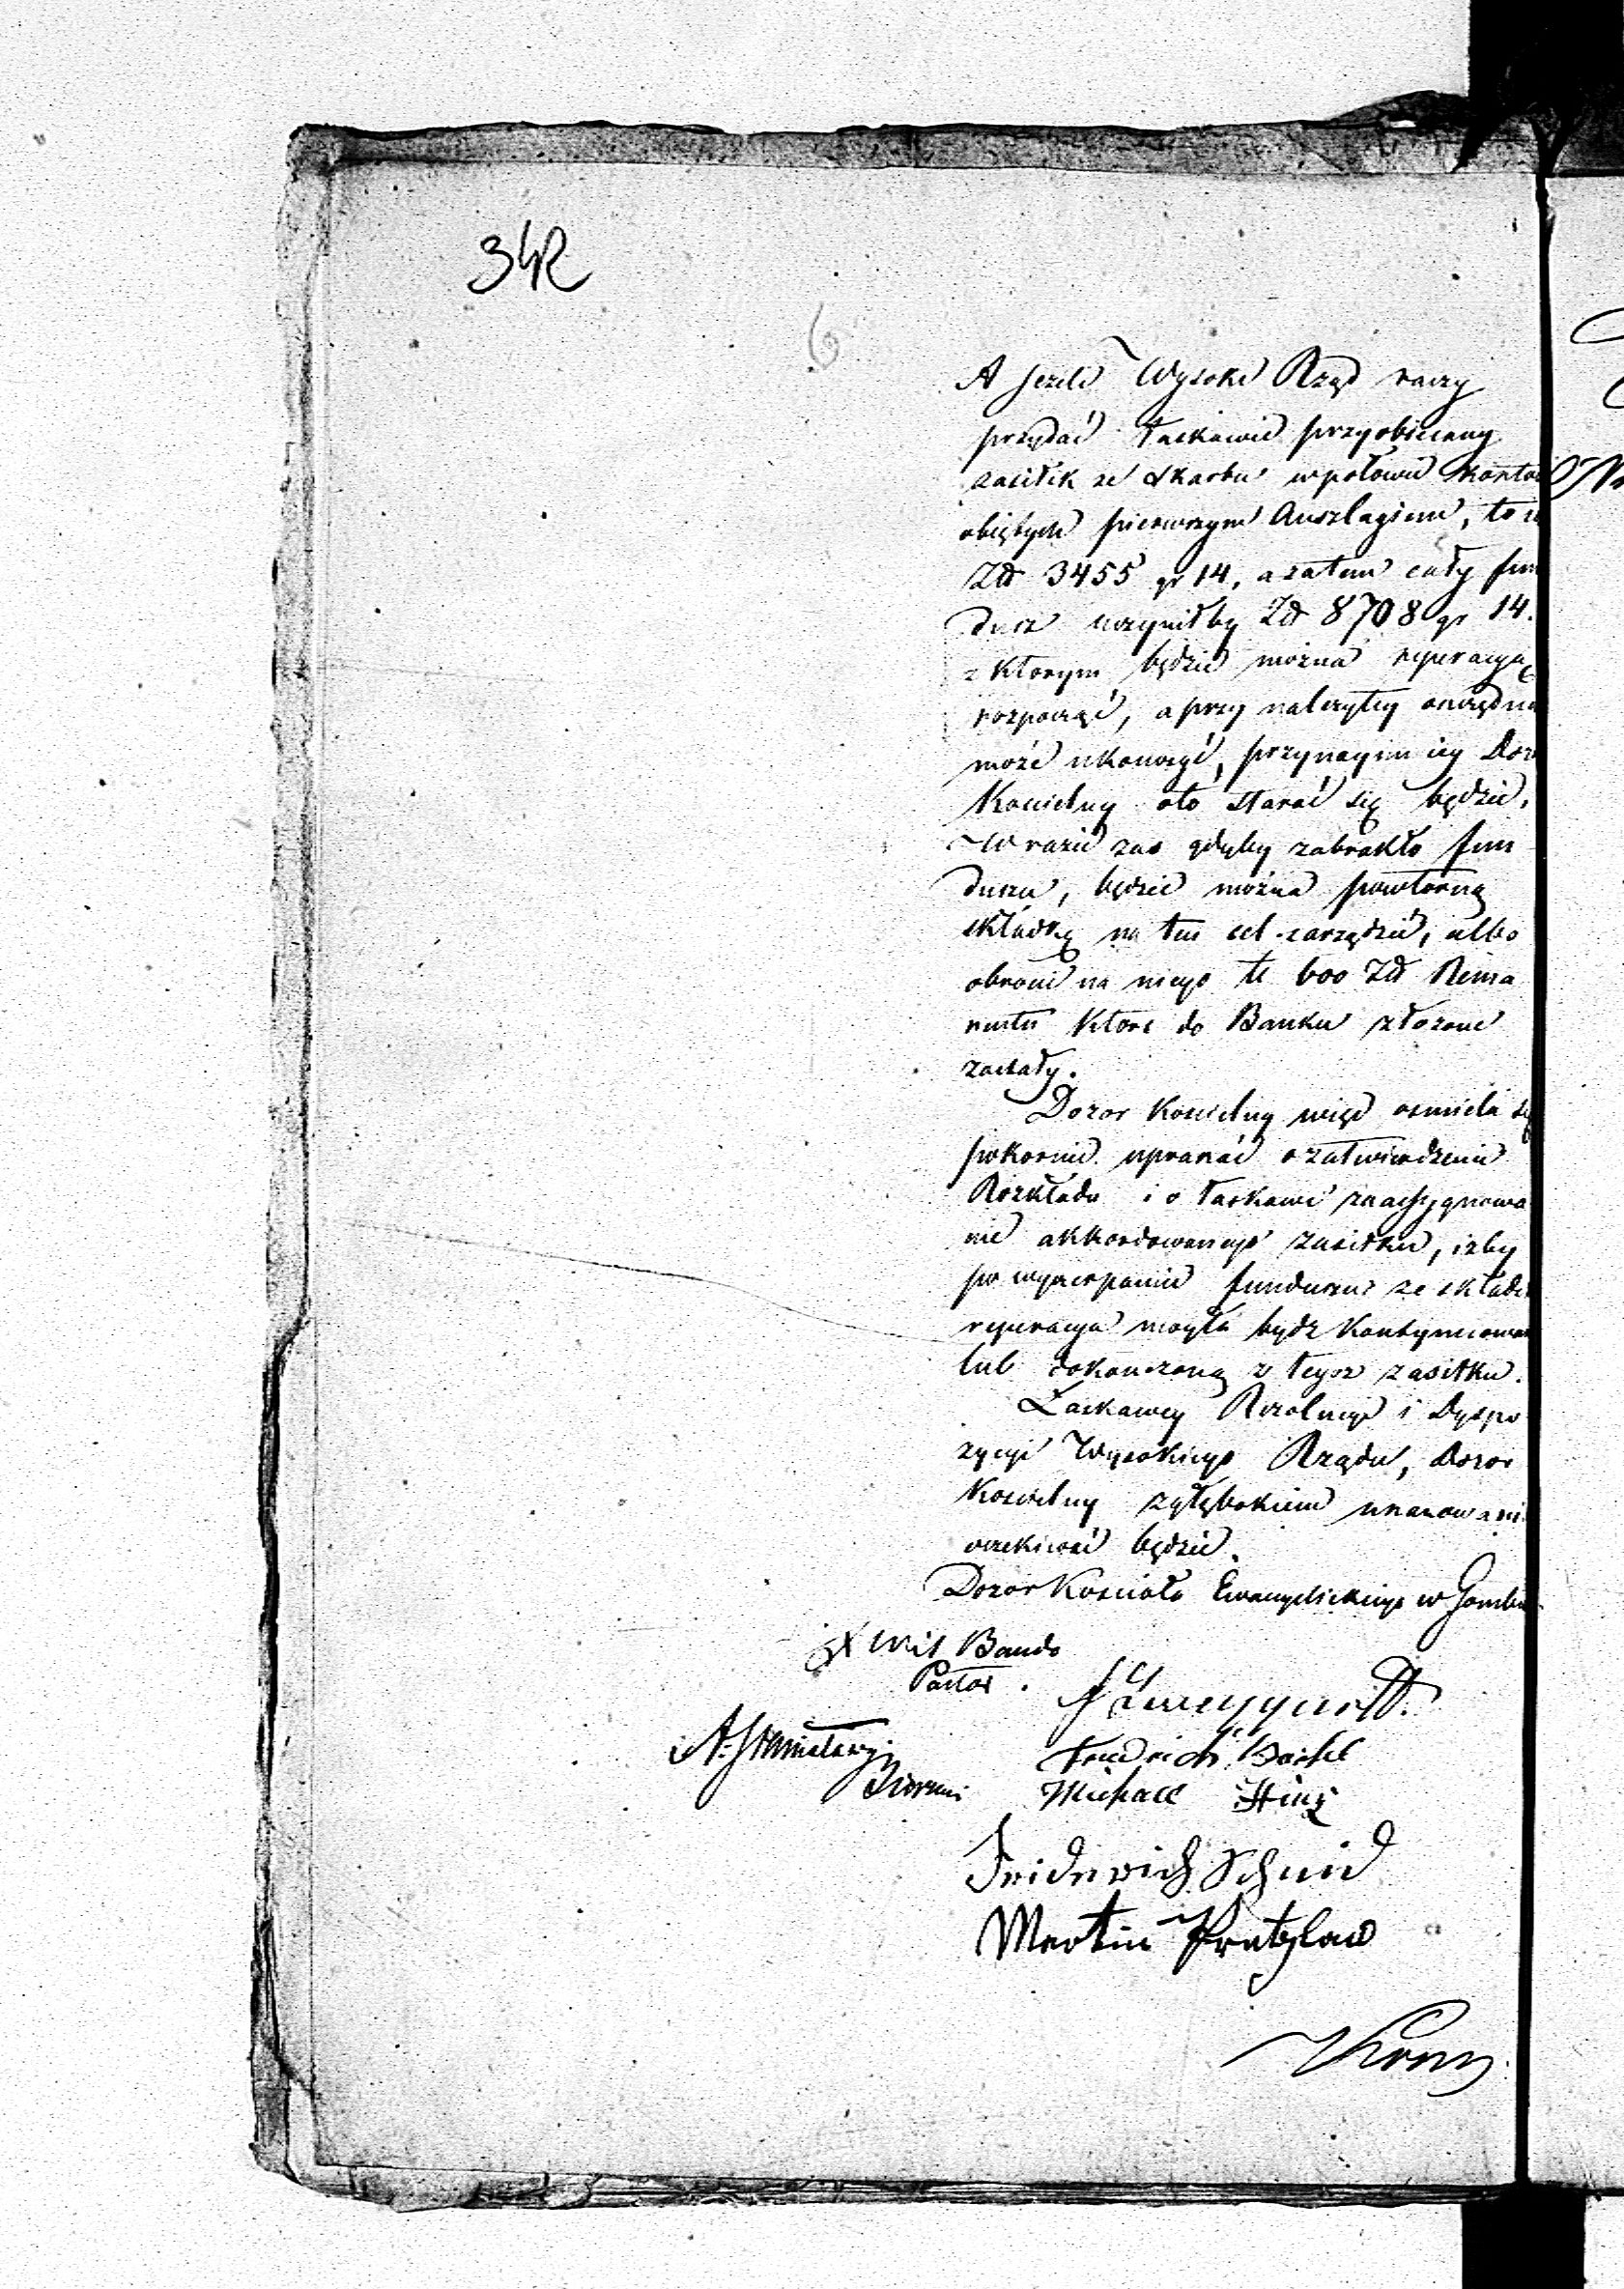 342
6
A Jezeli Wysoki Rząd raczy
przydać łaskawie przyobiecany
zasiłek ze Skarbu w połowie Koszto
obiętych pierwszym Anszlagiem, to i
Zł 3455 gr 14, a zatem cały fun
dusz uczyniłby Zł 8708 gr 14.
z ktorym będzie można reperacyą
rozpocząć, a przy należytey oszczędno
może ukończyć, przynaymniey Dozo
Kościelny oto starać się będzie,
W razie zas gdyby zabrakło fun
duszu, będzie można powtorną
składkę na ten cel zarządzić, albo
obrocić na niego te 600 Zł Rema
nentu ktore do Banku złozone
zostały.
Dozor Koscielny więc osmiela się
pokornie upraszać o zatwierdzenie
Rozkładu i o łaskawe zaassygnowa
nie akkordowanego zasiłku, izby
po wyczerpaniu funduszu ze składki
reperacya mogła bydz kontynuowan
lub dokonczoną z tegoz zasiłku.
Łaskawey Rezolucyi i Dyspo
zycyi Wysokiego Rządu, Dozor
Koscielny z głębokiem uszanowani
oczekiwać będzie.
Dozor Kościoła Ewangelickiego w Gombi
X Wil Bando
Pastor.
Friedrich
Michael Hinz
Friderich Schmid
Martin Pratzlaw